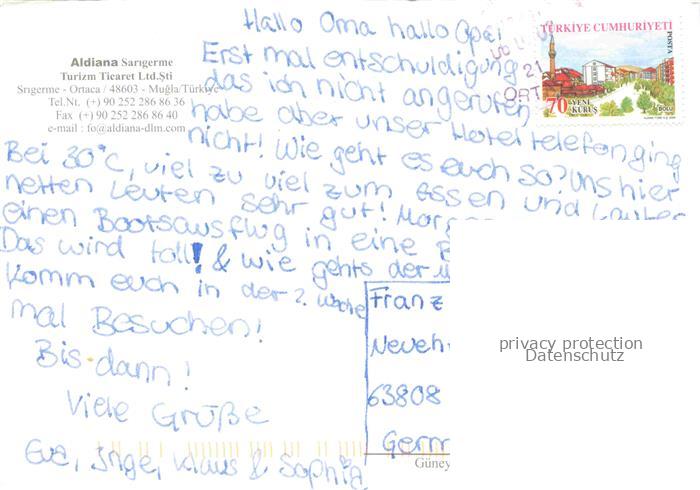 Hallo Oma hallo Opa!
Erst mal entschuldigung
das ich nicht angerufen
habe aber unser Hoteltelefon ging
nicht! Wie geht es euch so? Uns hier
Bei 30°C, viel zu viel zum essen und lauter
netten Leuten sehr gut! Morgen
einen Bootsausflug in eine
Das wird toll! & wie gehts der
Komm euch in der 2. Woche
mal Besuchen!
Bis dann!
Viele Grüße
Eva, Inge, Klaus & Sophia
Aldiana Sarıgerme
Turizm Ticaret Ltd.Şti
Sarıgerme - Ortaca / 48603 - Muğla/Türkiye
Tel.Nt. (+) 90 252 286 86 36
Fax (+) 90 252 286 86 40
e-mail : fo@aldiana-dlm.com
TÜRKİYE CUMHURİYETİ
POSTA
70 YENİ KURUŞ
BOLU
21
ORT
Franz
Neueh
63808
Germ
Güney
privacy protection
Datenschutz